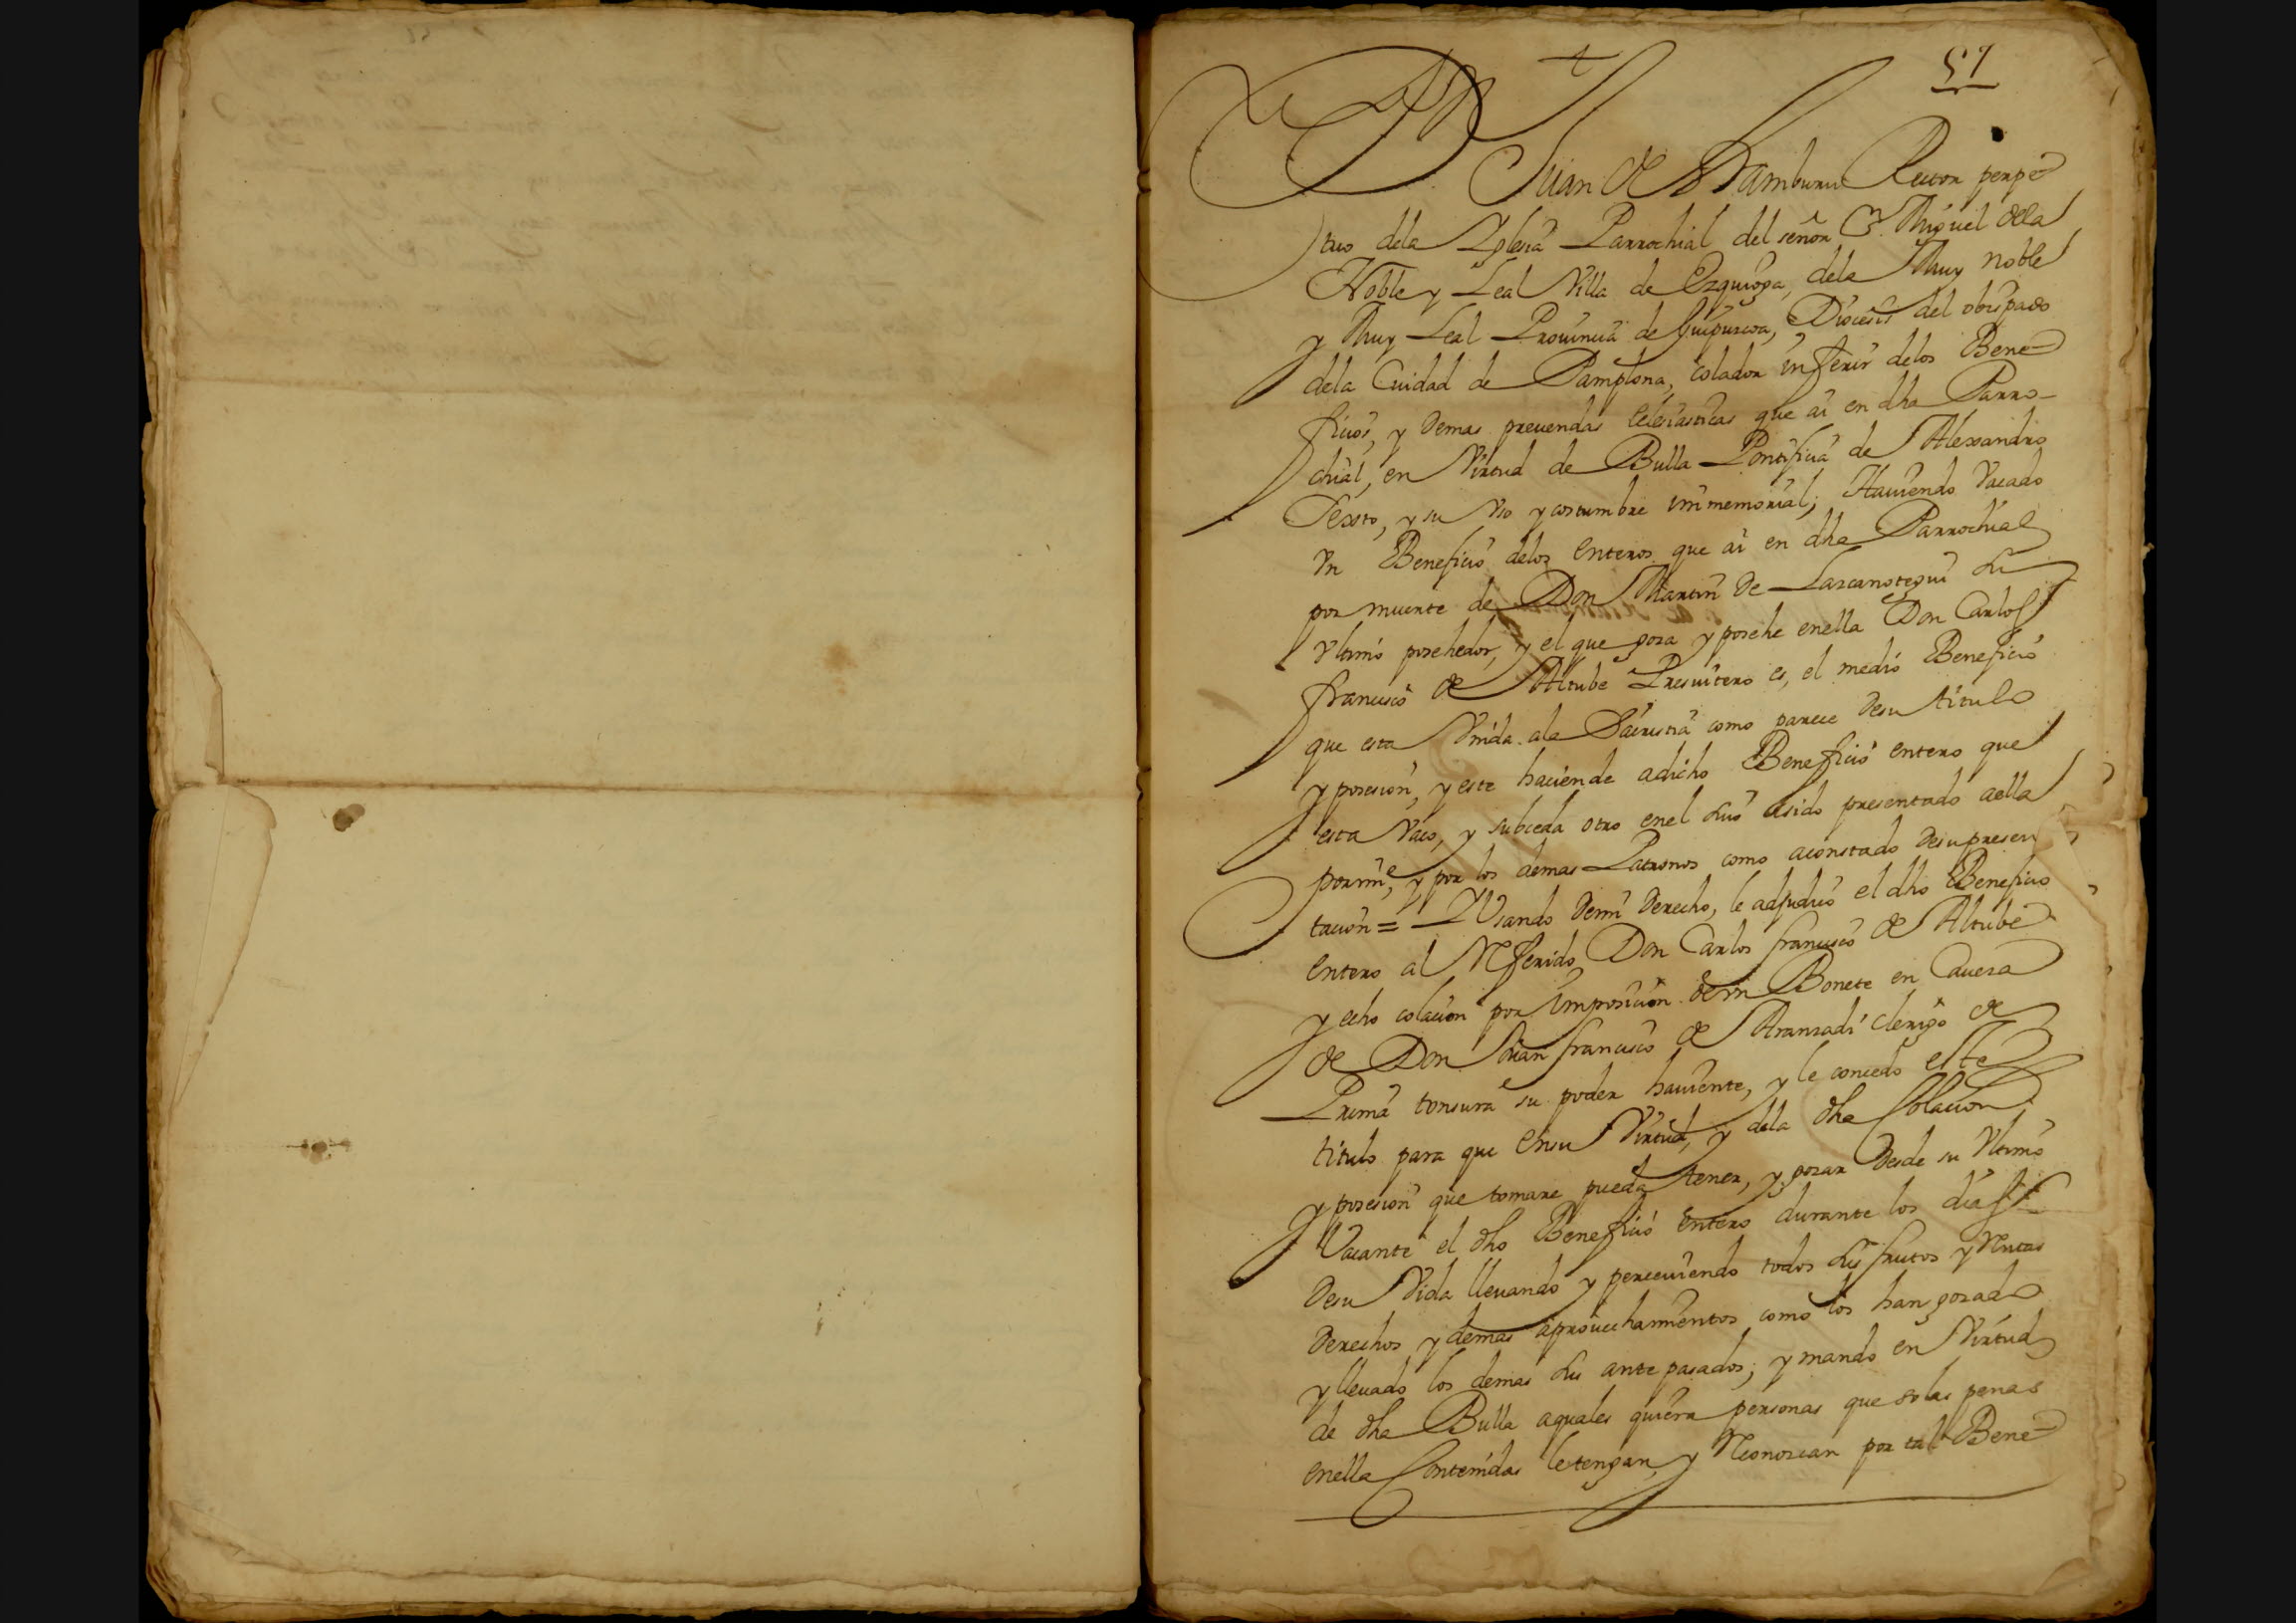 57
Dn Juan de Aramburu Rector perpe-
tuo dela Yglesia Parrochial del señor Sn. Miguel dela
Noble y Leal Villa de Ezquioga, dela Muy noble
y Muy Leal Prouincia de Guipuzcoa, Diocesis del obispado
dela Ciudad de Pamplona, colador inferir delos Bene-
ficios, y demas preuendas Eclesiasticas que ai en dha Parro-
chial, en Virtud de Bulla Pontificia de Alexandro
Sexsto, y su Vso y costumbre immemorial; Hauiendo Vacado
Vn Beneficio delos Enteros que ai en dha Parrochial
por muerte de Don Martin de Lazcanotegui su
Vltimo posehedor, y el que goza y posehe enella Don Carlos
francisco de Altube Presuitero es, el medio Beneficio
que esta Vnida ala Sacristia como parece desu titulo
y posesion, y este haciende adicho Beneficio entero que
esta Vaco, y subceda otro enel suio asido presentado aella
pormi, y por los demas Patronos como aconstado desupresen
tacion = Y Vsando demi derecho, le adjudico el dho Beneficio
entero al Referido Don Carlos francisco de Altube
y echo colacion por imposicion de vn Bonete en Caueza
de Don Juan francisco de Aranzadi clerigo de
Prima tonsura su poder hauiente, y le concedo este
titulo para que ensu Virtud, y dela dha Colacion
y posesion que tomare pueda tener, y gozar desde su Vltimo
Vacante el dho Beneficio entero durante los dias
desu Vida lleuando y perceuiendo todos sus frutos y Rentas
derechos y demas aprouechamientos como los han gozado
y lleuado los demas sus ante pasados; y mando en Virtud
de dha Bulla aquales quiera personas que solas penas
enella Contenidas letengan, y Reconozcan por tal Bene-